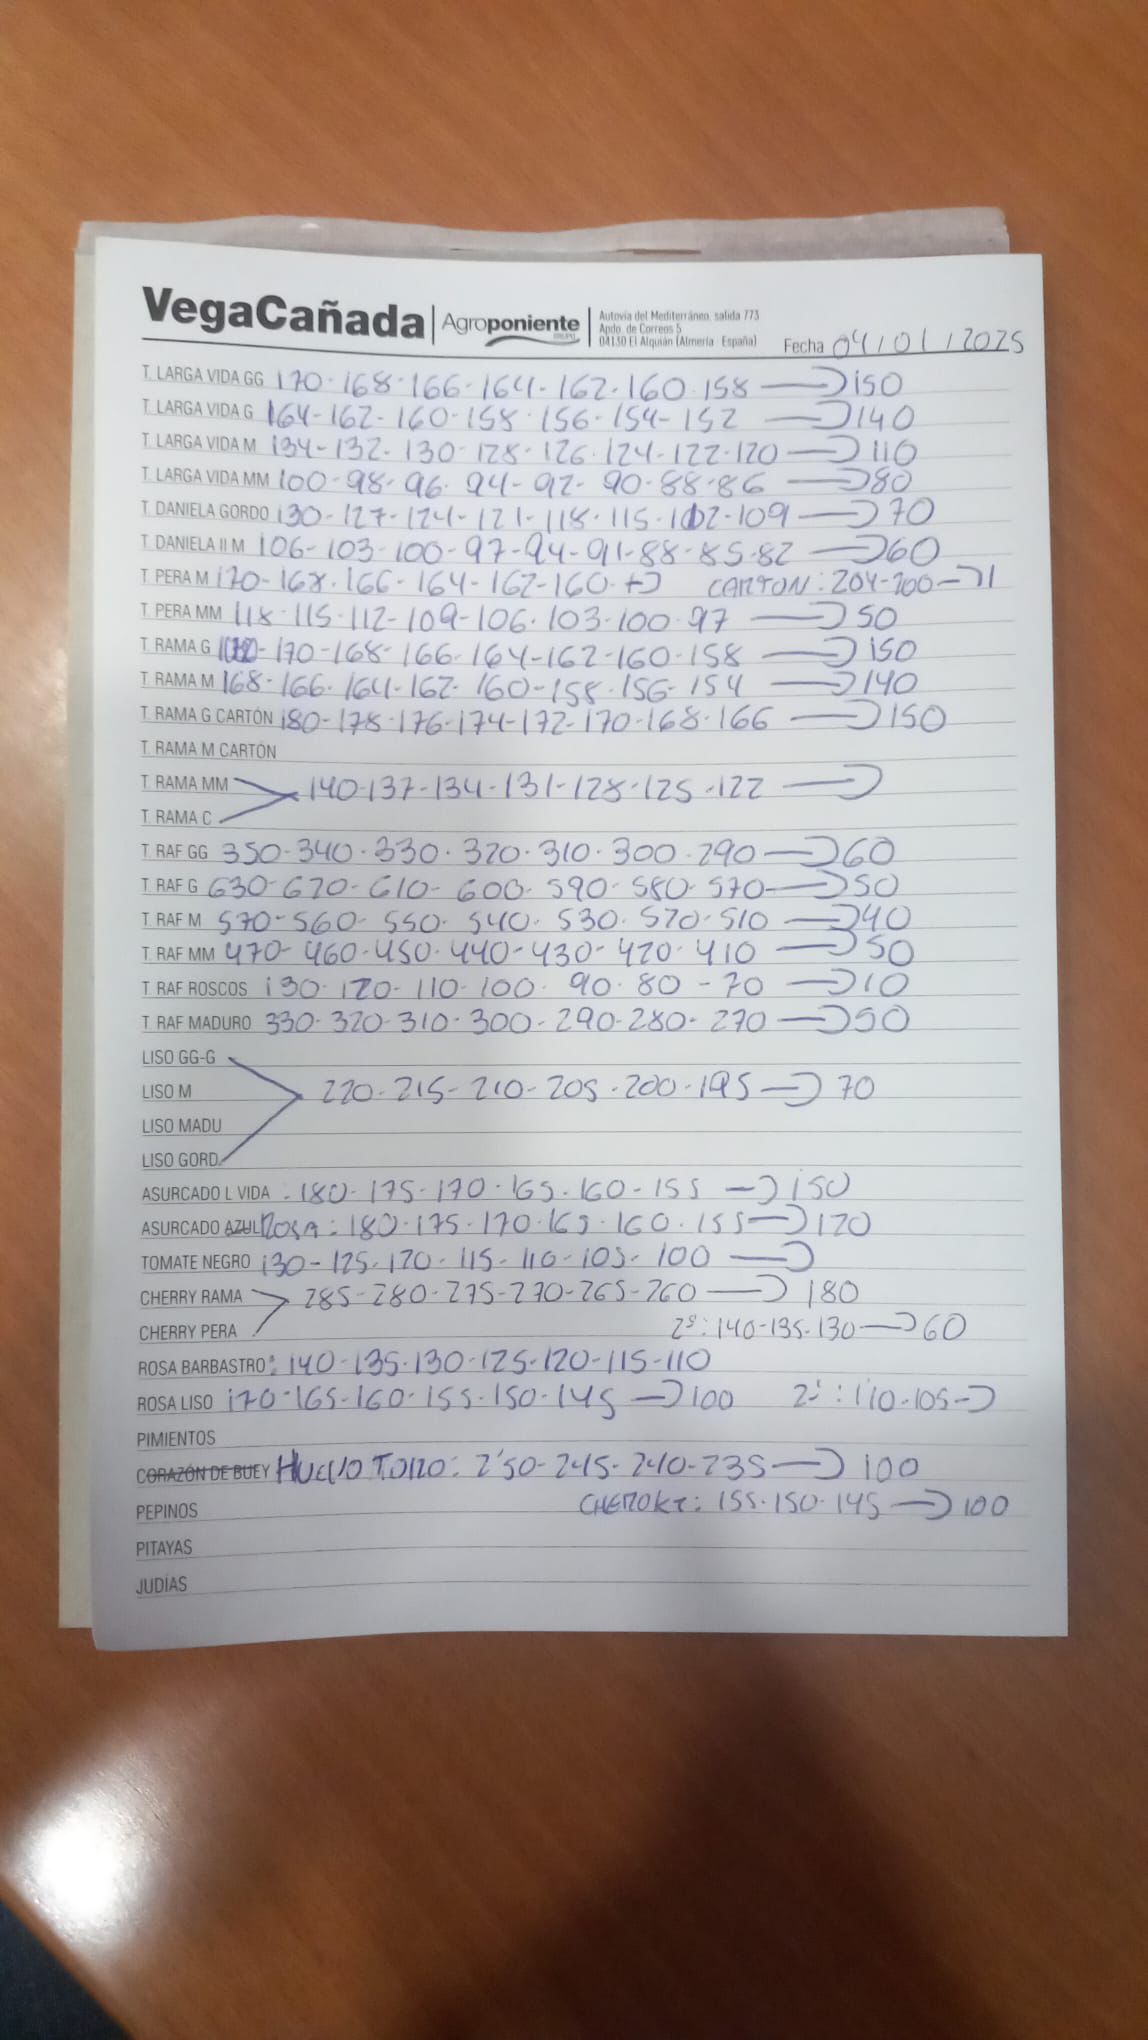 VegaCañada | Agroponiente GRUPO
Autovía del Mediterráneo, salida 773
Apdo. de Correos 5
04130 El Alquián (Almería - España)
Fecha 04/01/2025
T. LARGA VIDA GG 170-168-166-164-162-160-158 → 150
T. LARGA VIDA G 164-162-160-158-156-154-152 → 140
T. LARGA VIDA M 134-132-130-128-126-124-122-120 → 110
T. LARGA VIDA MM 100-98-96-94-92-90-88-86 → 80
T. DANIELA GORDO 130-127-124-121-118-115-112-109 → 70
T. DANIELA II M 106-103-100-97-94-91-88-85-82 → 60
T. PERA M 170-168-166-164-162-160 → CARTON: 204-200 →
T. PERA MM 118-115-112-109-106-103-100-97 → 50
T. RAMA G 170-168-166-164-162-160-158 → 150
T. RAMA M 168-166-164-162-160-158-156-154 → 140
T. RAMA G CARTÓN 180-178-176-174-172-170-168-166 → 150
T. RAMA M CARTÓN
T. RAMA MM 140-137-134-131-128-125-122 →
T. RAMA C
T. RAF GG 350-340-330-320-310-300-290 → 60
T. RAF G 630-620-610-600-590-580-570 → 50
T. RAF M 570-560-550-540-530-520-510 → 40
T. RAF MM 470-460-450-440-430-420-410 → 50
T. RAF ROSCOS 130-120-110-100-90-80-70 → 10
T. RAF MADURO 330-320-310-300-290-280-270 → 50
LISO GG-G
LISO M 220-215-210-205-200-195 → 70
LISO MADU
LISO GORD.
ASURCADO L VIDA: 180-175-170-165-160-155 → 150
ASURCADO AZUL ROSA: 180-175-170-165-160-155 → 120
TOMATE NEGRO 130-125-120-115-110-105-100 →
CHERRY RAMA 285-280-275-270-265-260 → 180
CHERRY PERA 2ª: 140-135-130 → 60
ROSA BARBASTRO: 140-135-130-125-120-115-110
ROSA LISO 170-165-160-155-150-145 → 100 2ª: 110-105 →
PIMIENTOS
CORAZÓN DE BUEY HUEVO TORO: 250-245-240-235 → 100
PEPINOS CHEROKI: 155-150-145 → 100
PITAYAS
JUDÍAS